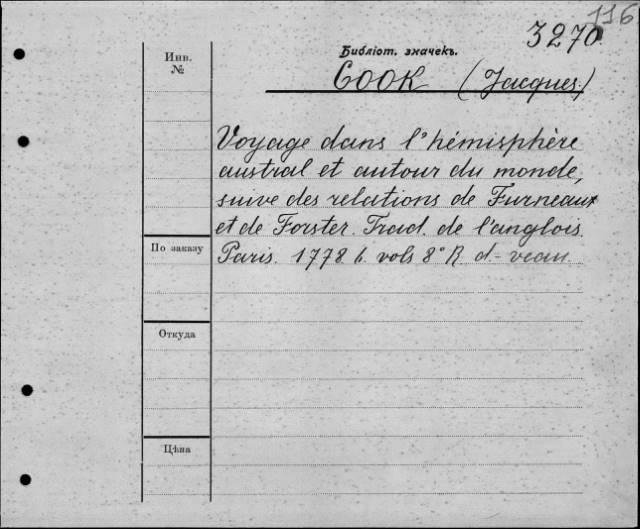 116
3270
Библіот. значекъ.
COOK (Jacques.)
Инв.
№
Voyage dans l'hémisphère
austral et autour du monde,
suive des relations de Furneaux
et de Forster. Trad. de l'anglois.
Paris. 1778. 6. vols 8° R d.-veau
По заказу
Откуда
Цѣна